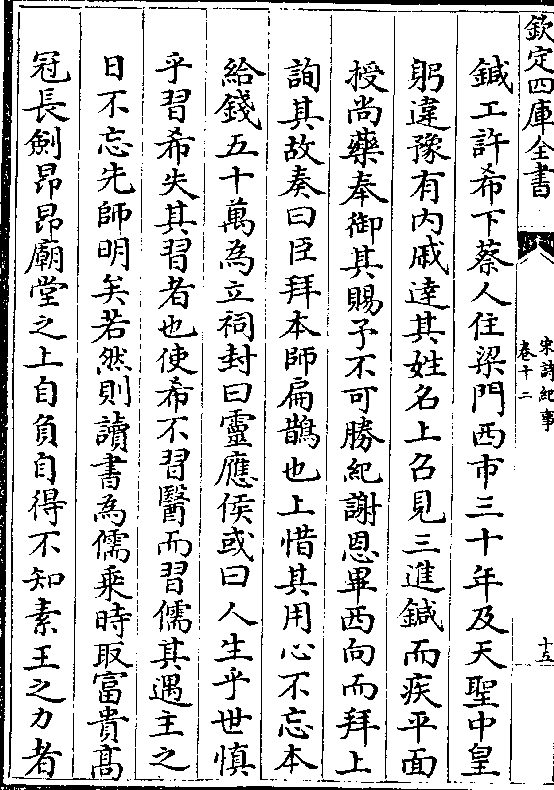 欽定四庫全書
宋詩紀事
卷十二
十五
鍼工許希下蔡人住梁門西市三十年及天聖中皇
躬違豫有内戚達其姓名上召見三進鍼而疾平面
授尚藥奉御其賜予不可勝紀謝恩畢西向而拜上
詢其故奏曰臣拜本師扁鵲也上惜其用心不忘本
給錢五十萬為立祠封曰靈應侯或曰人生乎世慎
乎習希失其習者也使希不習醫而習儒其遇主之
日不忘先師明矣若然則讀書為儒乘時取富貴髙
冠長劍昂昂廟堂之上自負自得不知素王之力者